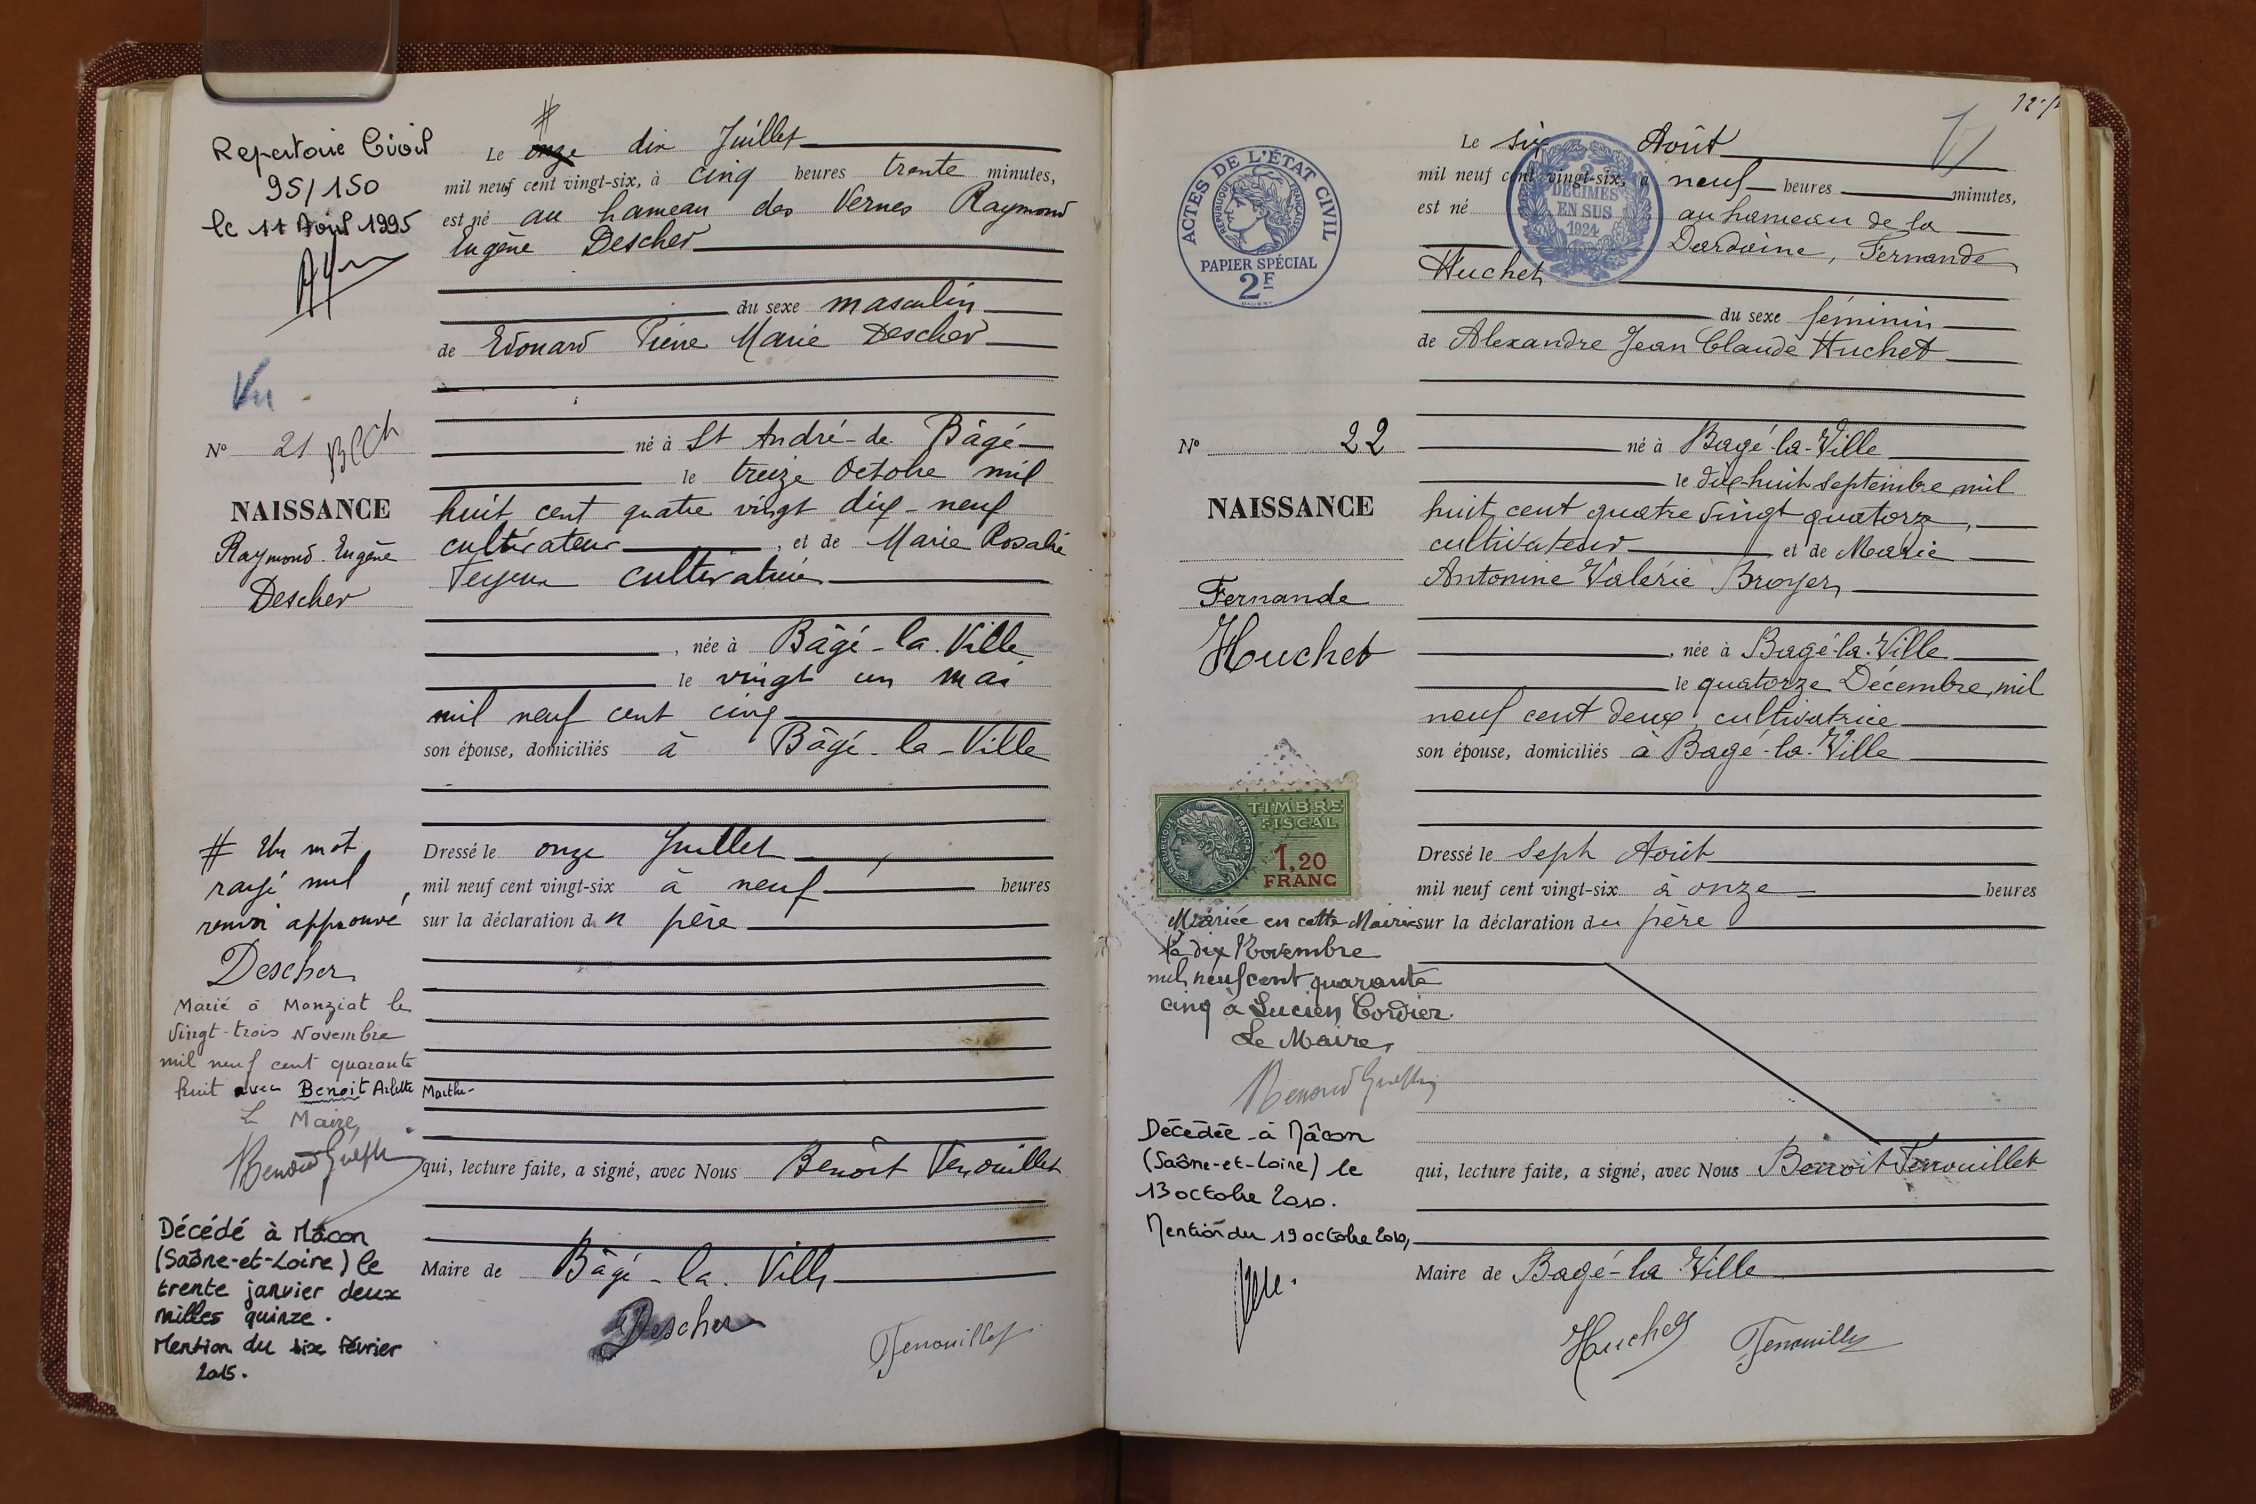 Repertoire Civil
95/150
le 11 Août 1995
Vu
N° 21
NAISSANCE
Raymond Eugène
Descher
# Un mot
rayé nul
renvoi approuvé
Descher
Marié à Manziat le
vingt-trois Novembre
mil neuf cent quarante
huit avec Benoit Arlette Marthe-
Le Maire,
Décédé à Mâcon
(Saône-et-Loire) le
trente janvier deux
milles quinze.
Mention du six février
2015.
#
Le onze dix Juillet
mil neuf cent vingt-six, à cinq heures trente minutes,
est né au hameau des Vernes Raymond
Eugène Descher
du sexe masculin
de Edouard Pierre Marie Descher
né à St André-de Bâgé
le treize Octobre mil
huit cent quatre vingt dix-neuf
cultivateur, et de Marie Rosalie
cultivatrice
, née à Bâgé-la-Ville
le vingt un mai
mil neuf cent cinq
son épouse, domiciliés à Bâgé-la-Ville
Dressé le onze Juillet
mil neuf cent vingt-six à neuf heures
sur la déclaration du père
qui, lecture faite, a signé, avec Nous Benoît Fenouillet
Maire de Bâgé-la-Ville
Descher
Fenouillet
ACTES DE L'ÉTAT CIVIL
RÉPUBLIQUE FRANÇAISE
PAPIER SPÉCIAL
2F
2 DÉCIMES
EN SUS
1924
N° 22
NAISSANCE
Fernande
Huchet
TIMBRE
FISCAL
RÉPUBLIQUE FRANÇAISE
1,20
FRANC
Mariée en cette Mairie
le dix Novembre
mil neuf cent quarante
cinq à Lucien Cordier
Le Maire,
Décédée à Mâcon
(Saône-et-Loire) le
13 octobre 2010.
Mention du 19 octobre 2010,
Le six Août
mil neuf cent vingt-six, à neuf heures minutes,
est né au hameau de la
Dardaine, Fernande
Huchet
du sexe féminin
de Alexandre Jean Claude Huchet
né à Bagé-la-Ville
le dix-huit septembre mil
huit cent quatre vingt quatorze,
cultivateur et de Marie
Antonine Valérie Broyer,
, née à Bagé-la-Ville
le quatorze Décembre mil
neuf cent deux, cultivatrice
son épouse, domiciliés à Bagé-la-Ville
Dressé le sept Août
mil neuf cent vingt-six à onze heures
sur la déclaration du père
qui, lecture faite, a signé, avec Nous Benoit Fenouillet
Maire de Bagé-la-Ville
Huchet
Fenouillet